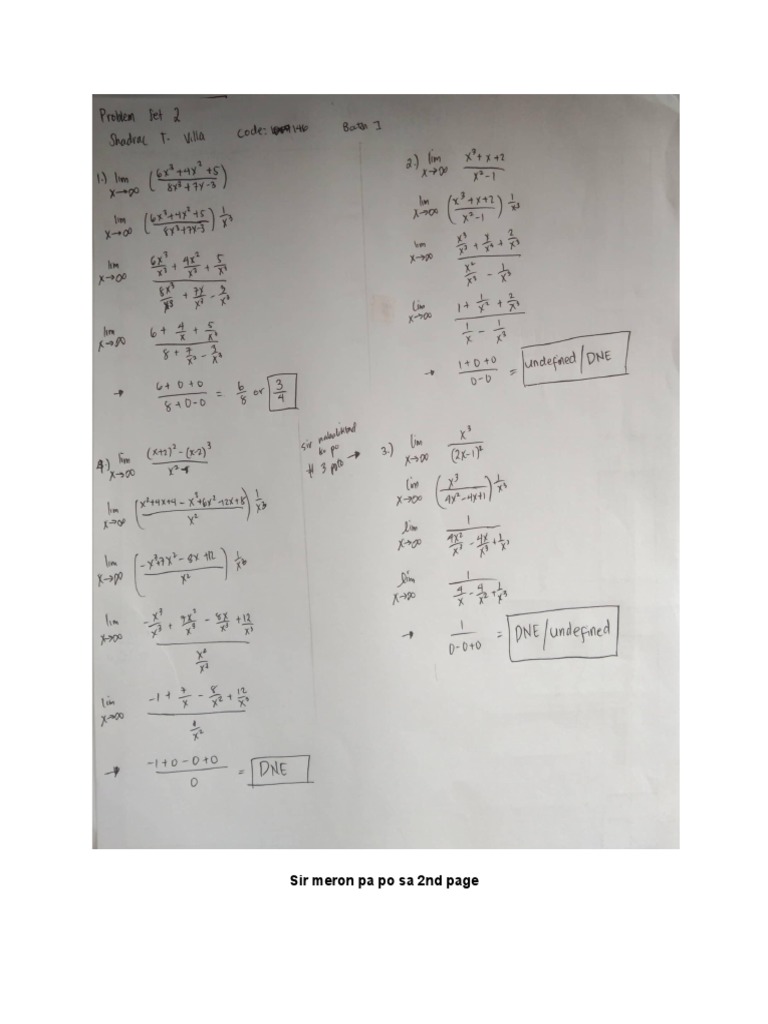 Problem Set 2
Shadrac T. Villa Code: 9146
1.) lim x→∞ (6x³+4x²+5 / 8x³+7x-3)
lim x→∞ (6x³+4x²+5 / 8x³+7x-3) 1/x³
lim x→∞ 6x³/x³ + 4x²/x³ + 5/x³ / 8x³/x³ + 7x/x³ - 3/x³
lim x→∞ 6 + 4/x + 5/x³ / 8 + 7/x² - 3/x³
→ 6+0+0 / 8+0-0 = 6/8 or 3/4
2.) lim x→∞ x³+x+2 / x²-1
lim x→∞ (x³+x+2 / x²-1) 1/x³
lim x→∞ x³/x³ + x/x³ + 2/x³ / x²/x³ - 1/x³
lim x→∞ 1 + 1/x² + 2/x³ / 1/x - 1/x³
→ 1+0+0 / 0-0 = undefined/DNE
4.) lim x→∞ (x+2)²-(x-2)³ / x²
lim x→∞ (x²+4x+4-x³+6x²-12x+8 / x²) 1/x³
lim x→∞ (-x³+7x²-8x+12 / x²) 1/x³
lim x→∞ -x³/x³ + 7x²/x³ - 8x/x³ + 12/x³ / x²/x³
lim x→∞ -1 + 7/x - 8/x² + 12/x³
→ -1+0-0+0 / 0 = DNE
sir
po
# 3
→ 3.) lim x→∞ x³ / (2x-1)²
lim x→∞ (x³ / 4x²-4x+1) 1/x³
lim x→∞ 1 / 4x²/x³ - 4x/x³ + 1/x³
lim x→∞ 1 / 4/x - 4/x² + 1/x³
→ 1 / 0-0+0 = DNE/undefined
Sir meron pa po sa 2nd page